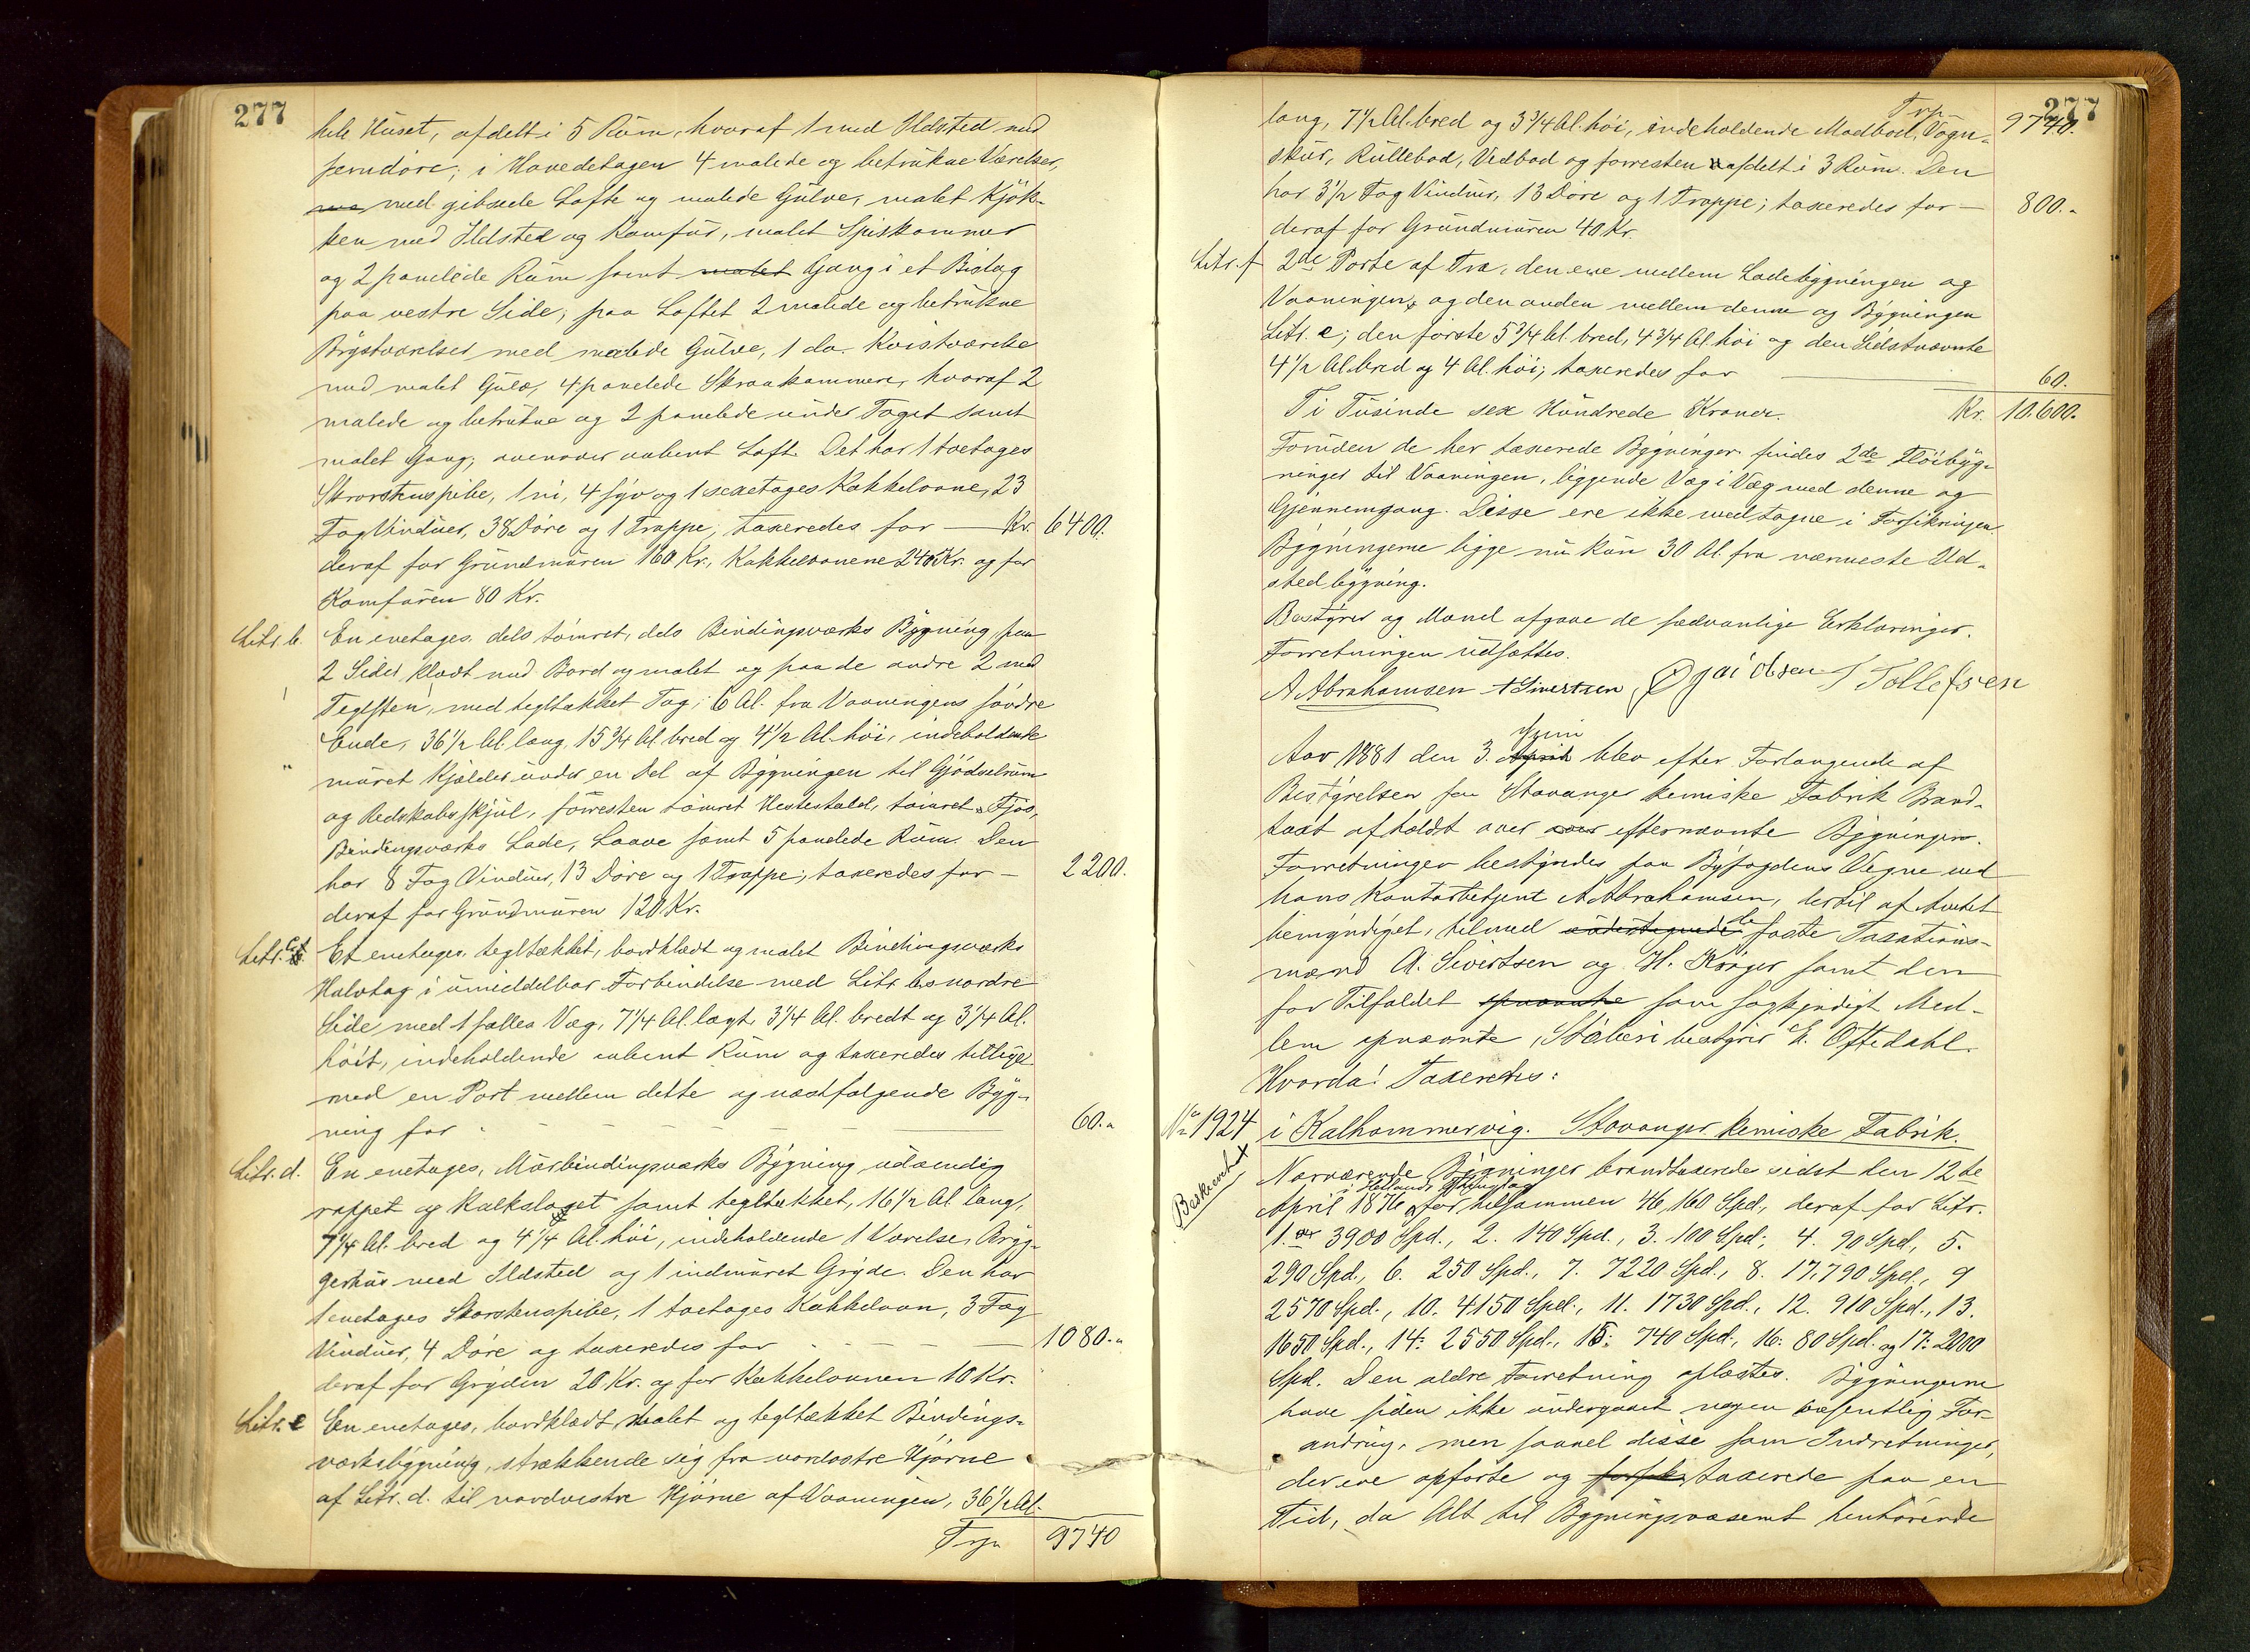 277
hele Huset, afdelt i 5 Rum, hvoraf 1 med Ildsted med
jerndöre; i Hovedetagen 4 malede og betrukne Værelser,
med gibsede Lofte og malede Gulve, malet Kjök-
ken med Ildsted og Komfur, malet Spiskammer
og 2 panelede Rum samt malet Gang i et Bislag
paa vestre Side; paa Loftet 2 malede og betrukne
Brystværelser med malede Gulve, 1 do. Kvistværelse
med malet Gulv, 4 panelede Skraakammere, hvoraf 2
malede og betrukne og 2 panelede under Taget samt
malet Gang; ovenover aabent Loft. Det har 1 toetages
Skorstenspibe, 1 ni, 4 syv og 1 sexetages Kakkelovne, 23
Fag Vinduer, 38 Döre og 1 Trappe; taxeredes for — Kr. 6400.
deraf for Grundmuren 160 Kr., Kakkelovnene 240 Kr. og for
Komfuren 80 Kr.
Litr. b. En enetages, dels tömret, dels Bindingsværks Bygning, paa
2 Sider klædt med Bord og malet og paa de andre 2 med
Teglsten, med tegltækket Tag; 6 Al. fra Vaaningens söndre
Ende, 36½ Al. lang, 15¾ Al. bred og 4½ Al. höi, indeholdende
muret Kjælder under en Del af Bygningen til Gjödselrum
og Redskabsskjul, forresten tömret Hestestald, tömret Fjös,
Bindingsværks Lade, Laave samt 5 panelede Rum. Den
har 8 Fag Vinduer, 13 Döre og 1 Trappe; taxeredes for — 2200.
deraf for Grundmuren 120 Kr.
Litr. c. Et enetages, tegltækket, bordklædt og malet Bindingsværks
Halvtag i umiddelbar Forbindelse med Litr. b's nordre
Side med 1 fælles Væg, 7¼ Al. langt, 3¼ Al. bredt og 3¼ Al.
höit, indeholdende aabent Rum og taxeredes tillige
med en Port mellem dette og næstfölgende Byg-
ning for 60.
Litr. d. En enetages, Murbindingsværks Bygning udvendig
rappet og kalkslaget samt tegltækket, 16½ Al. lang,
7¼ Al. bred og 4¼ Al. höi, indeholdende 1 Værelse, Bryg-
gerhus med Ildsted og 1 indmuret Gryde. Den har
1 enetages Skorstenspibe, 1 toetages Kakkelovn, 3 Fag
Vinduer, 4 Döre og taxeredes for — 1080.
deraf for Gryden 20 Kr. og for Kakkelovnen 10 Kr.
Litr. e En enetages, bordklædt, malet og tegltækket Bindings-
værksbygning, strækkende sig fra nordostre Hjörne
af Litr. d. til nordvestre Hjörne af Vaaningen, 36½ Al.
Trp. 9740
277
Trp. 9740.
lang, 7½ Al. bred og 3¾ Al. höi, indeholdende Madbod, Vogn-
skur, Rullebod, Vedbod og forresten afdelt i 3 Rum. Den
har 3½ Fag Vinduer, 13 Döre og 1 Trappe; taxeredes for — 800.
deraf for Grundmuren 40 Kr.
Litr. f 2de Porte af Træ, den ene mellem Ladebygningen og
Vaaningen, og den anden mellem denne og Bygningen
Litr. e; den förste 5¾ Al. bred, 4¾ Al. höi og den Sidstnævnte
4½ Al. bred og 4 Al. höi; taxeredes for 60.
Ti Tusinde sex Hundrede Kroner. Kr. 10.600.
Foruden de her taxerede Bygninger findes 2de Flöibyg-
ninger til Vaaningen, liggende Væg i Væg med denne og
Gjennemgang. Disse ere ikke medtagne i Forsikringen.
Bygningerne ligge nu kun 30 Al. fra nærmeste Ild-
stedbygning.
Bestyrer og Mænd afgave de sædvanlige Erklæringer.
Forretningen udsættes.
A Abrahamsen A Sivertsen T Tollefsen
Aar 1881 den 3. April Juni blev efter Forlangende af
Bestyrelsen for Stavanger kemiske Fabrik Brand-
taxt afholdt over over efternævnte Bygninger.
Forretningen bestyredes paa Byfogdens Vegne ved
hans Kontorbetjent A Abrahamsen, dertil af Amtet
bemyndiget, tilmed undertegnede de faste Taxations-
mænd A. Sivertsen og H. Kröger samt den
for Tilfældet opnævnte som sagkyndigt Med-
lem opnævnte, Støberibestyrer E. Oftedahl.
Hvorda! Taxeredes:
No 1924 i Kalhammervig. Stavanger kemiske Fabrik.
Beskrevet
Nærværende Bygninger brandtaxerede sidst den 12te
April 1876 i Hetlands Thinglag for tilsammen 46,160 Spd., deraf for Litr.
1. 3900 Spd., 2. 140 Spd., 3. 100 Spd., 4. 90 Spd., 5.
290 Spd., 6. 250 Spd., 7. 7220 Spd., 8. 17,790 Spd., 9
2570 Spd., 10. 4150 Spd., 11. 1730 Spd., 12. 910 Spd., 13.
1650 Spd., 14: 2550 Spd., 15: 740 Spd., 16: 80 Spd. og 17: 2000
Spd. Den ældre Forretning oplæstes. Bygningerne
have siden ikke undergaaet nogen væsentlig For-
andring, men saavel disse som Indretninger,
der ere opförte og taxerede paa en
Tid, da Alt til Bygningsvæsenet henhörende